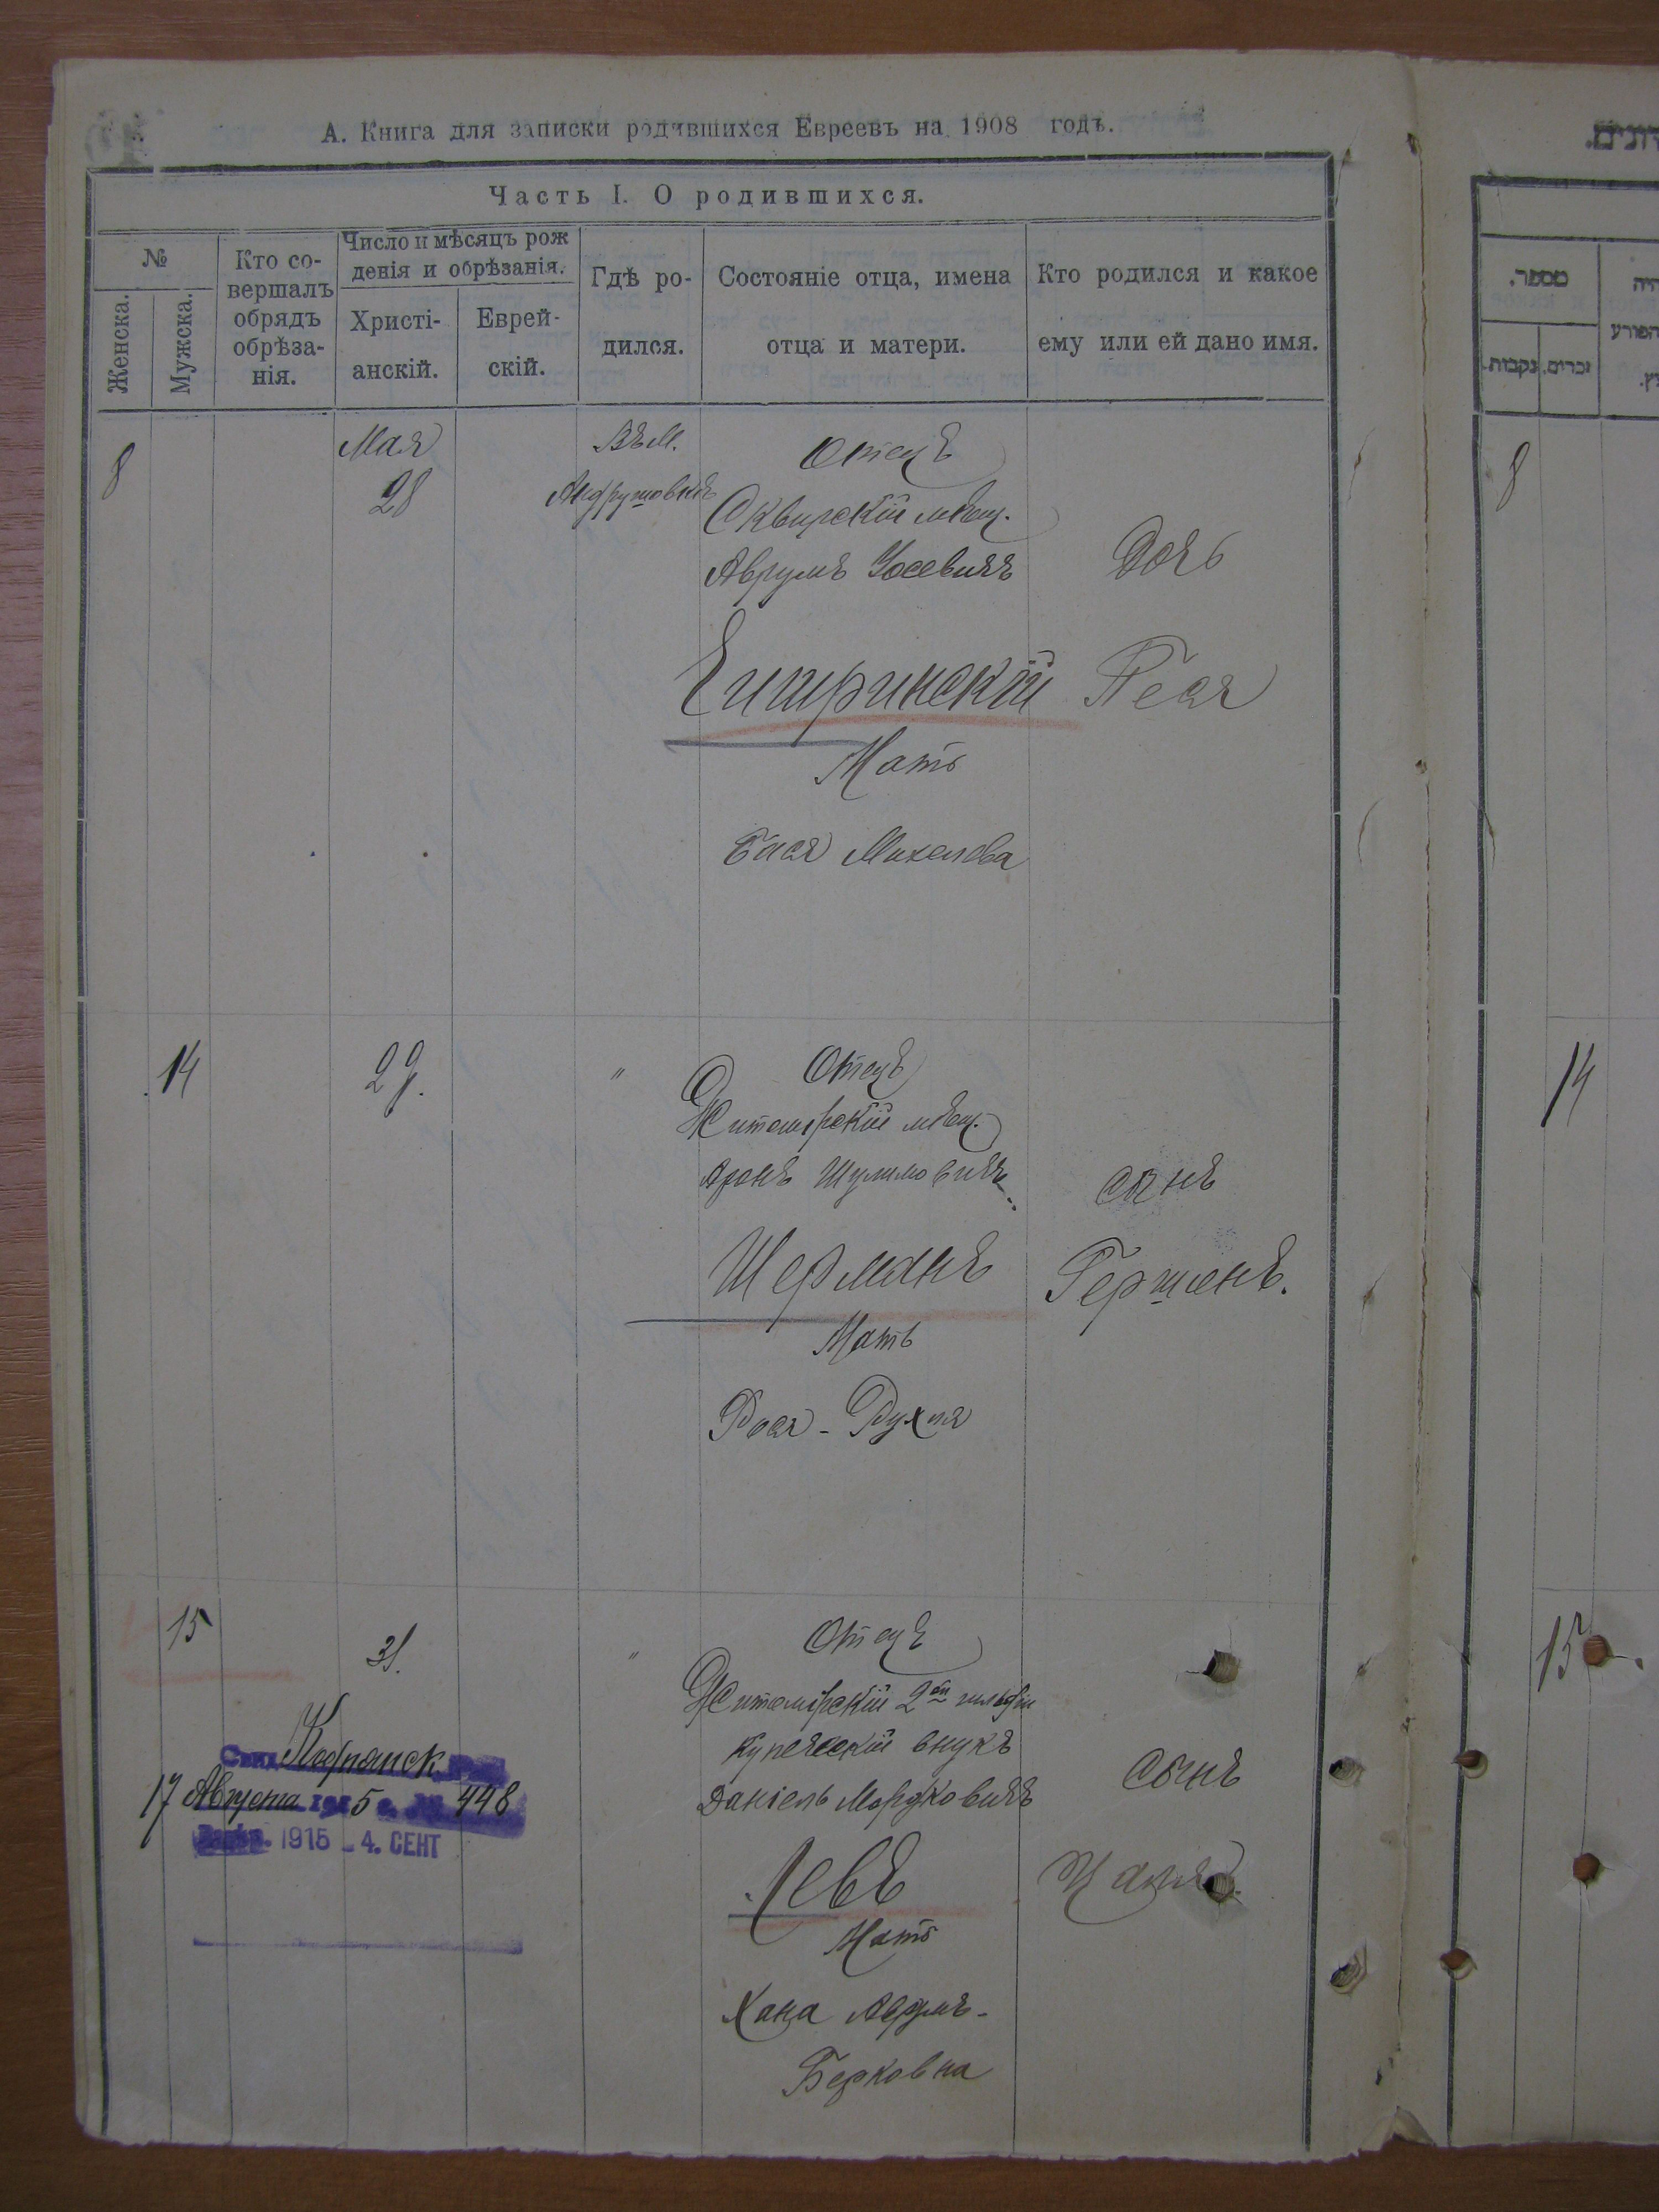 А. Книга для записки родившихся Евреевъ на 1908 годъ.
Часть I. О родившихся.
№
Женска.
Мужска.
Кто со-
вершалъ
обрядъ
обрѣза-
нія.
Число и мѣсяцъ рож
денія и обрѣзанія.
Христі-
анскій.
Еврей-
скій.
Гдѣ ро-
дился.
Состояніе отца, имена
отца и матери.
Кто родился и какое
ему или ей дано имя.
8
Мая
28
Въ М.
Андрушовкѣ
Отецъ
Сквирскій мѣщ.
Аврумъ Іосевичъ
Мать
Бася Михелева
Дочь
Песя
14
29.
"
Отецъ
Житомірскій мѣщ.
Аронъ Шулимовичъ
Шерманъ
Мать
Рося - Рухля
сынъ
Гершенъ.
15
31.
"
Отецъ
Житомірскій 2ой гильдіи
купеческій внукъ
Даніель Мордковичъ
Левъ
Мать
Хана Аврумъ-
Берковна
сынъ
17 Августа 1915 г. № 448
1915 - 4. СЕНТ
מספר.
זכרים.
נקבות.
8
14
15